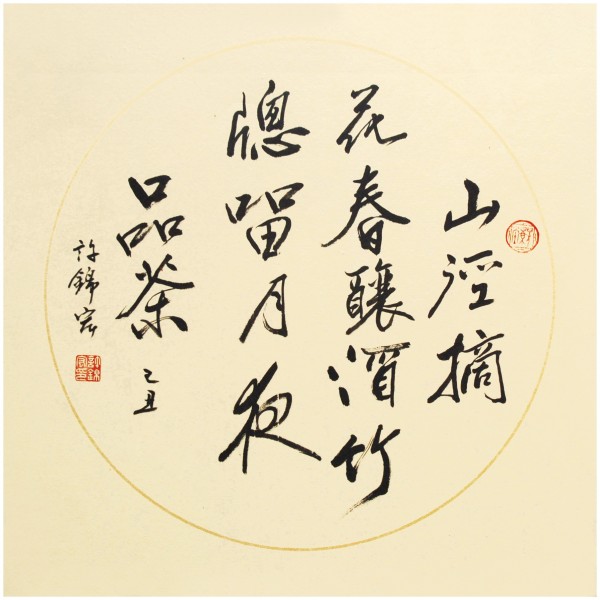 山徑摘
花春釀酒竹
牕留月夜
品茶 乙丑
許錦